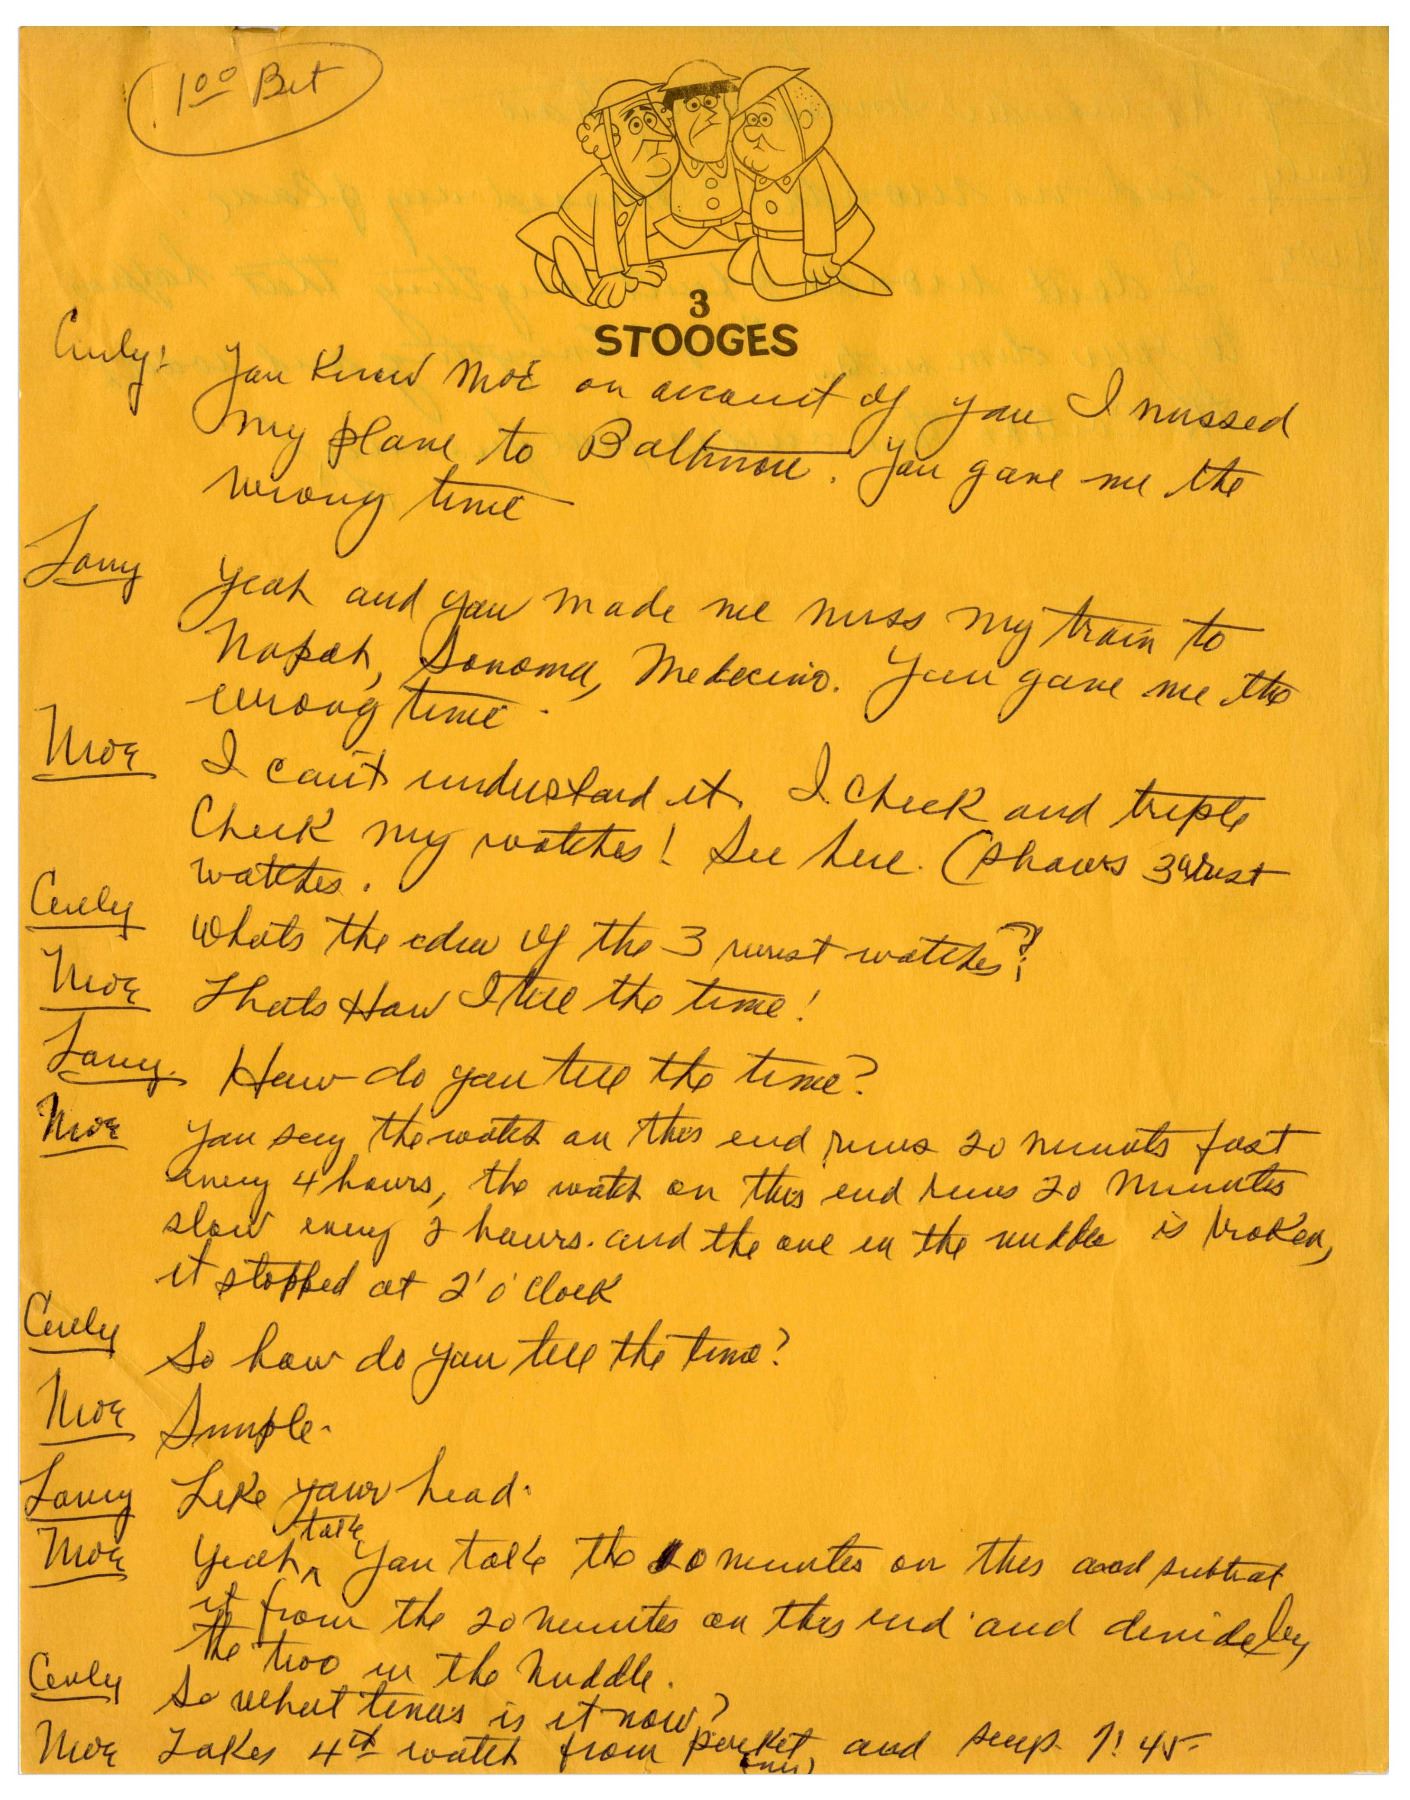 1⁰⁰ Bit
3
STOOGES
Curly: You Know Moe on account of you I missed
my plane to Baltimore. You gave me the
wrong time
Larry Yeah and you made me miss my train to
Napah, Sonoma, Medecino. You gave me the
wrong time.
Moe I can't understand it. I check and triple
Check my watches! See here. (Shows 3 wrist
watches.
Curly Whats the idea of the 3 wrist watches?
Moe Thats How I tell the time!
Larry. How do you tell the time?
Moe You see the watch on this end runs 20 minuts fast
every 4 hours, the watch on this end runs 20 minutes
slow every 2 hours. and the one in the middle is broken,
it stopped at 2'o'clock
Curly So how do you tell the time?
Moe Simple.
Larry Like your head.
talk
Moe Yeah You take the 20 minutes on this end subtrat
it from the 20 minutes on this end and divide by
the two in the middle.
Curly So what time is it now?
Moe Takes 4th watch from pocket, and says. 7:45-